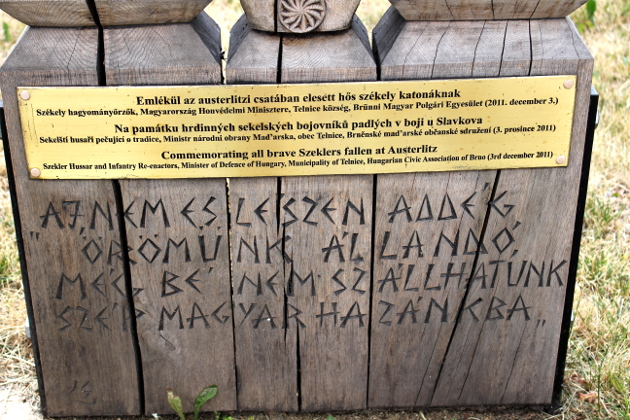 Emlékül az austerlitzi csatában elesett hős székely katonáknak
Székely hagyományőrzők, Magyarország Honvédelmi Minisztere, Telnice község, Brünni Magyar Polgári Egyesület (2011. december 3.)
Na památku hrdinných sekelských bojovníků padlých v boji u Slavkova
Sekelští husaři pečující o tradice, Ministr národni obrany Maďarska, obec Telnice, Brněnské maďarské občanské sdružení (3. prosince 2011)
Commemorating all brave Szeklers fallen at Austerlitz
Szekler Hussar and Infantry Re-enactors, Minister of Defence of Hungary, Municipality of Telnice, Hungarian Civic Association of Bruo (3rd december 2011)
AJ, NEM ÉS LESZEN ADDÉG
„ÖRÖMÜNK ÁLLANDÓ,
MÉG BÉ NEM SZÁLLHATUNK
SZÉP MAGYAR HAZÁNKBA„